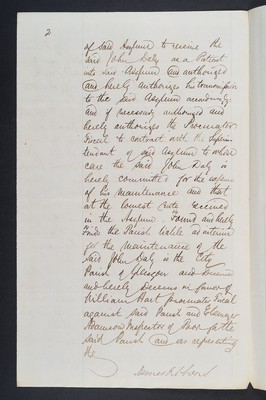 2
of said Asylum to receive the
said John Daly as a Patient
into said Asylum and authorized
and hereby authorizes his transmission
to the said Asylum accordingly
and if necessary authorized and
hereby authorizes the Procurator
Fiscal to contract with the Superin-
tendent of said Asylum to whose
care the said John Daly is
hereby committed for the expense
of his maintenance and that
at the lowest rate received
in the Asylum. Found and hereby
Finds the Parish liable
for the maintenance of the
said John Daly is the City
Parish of Glasgow and Decerned
and hereby Decerns in favor of
William Hart procurator Fiscal
against said Parish and Ebenezer
Adamson Inspector of Poor for the
said Parish and as representing
the